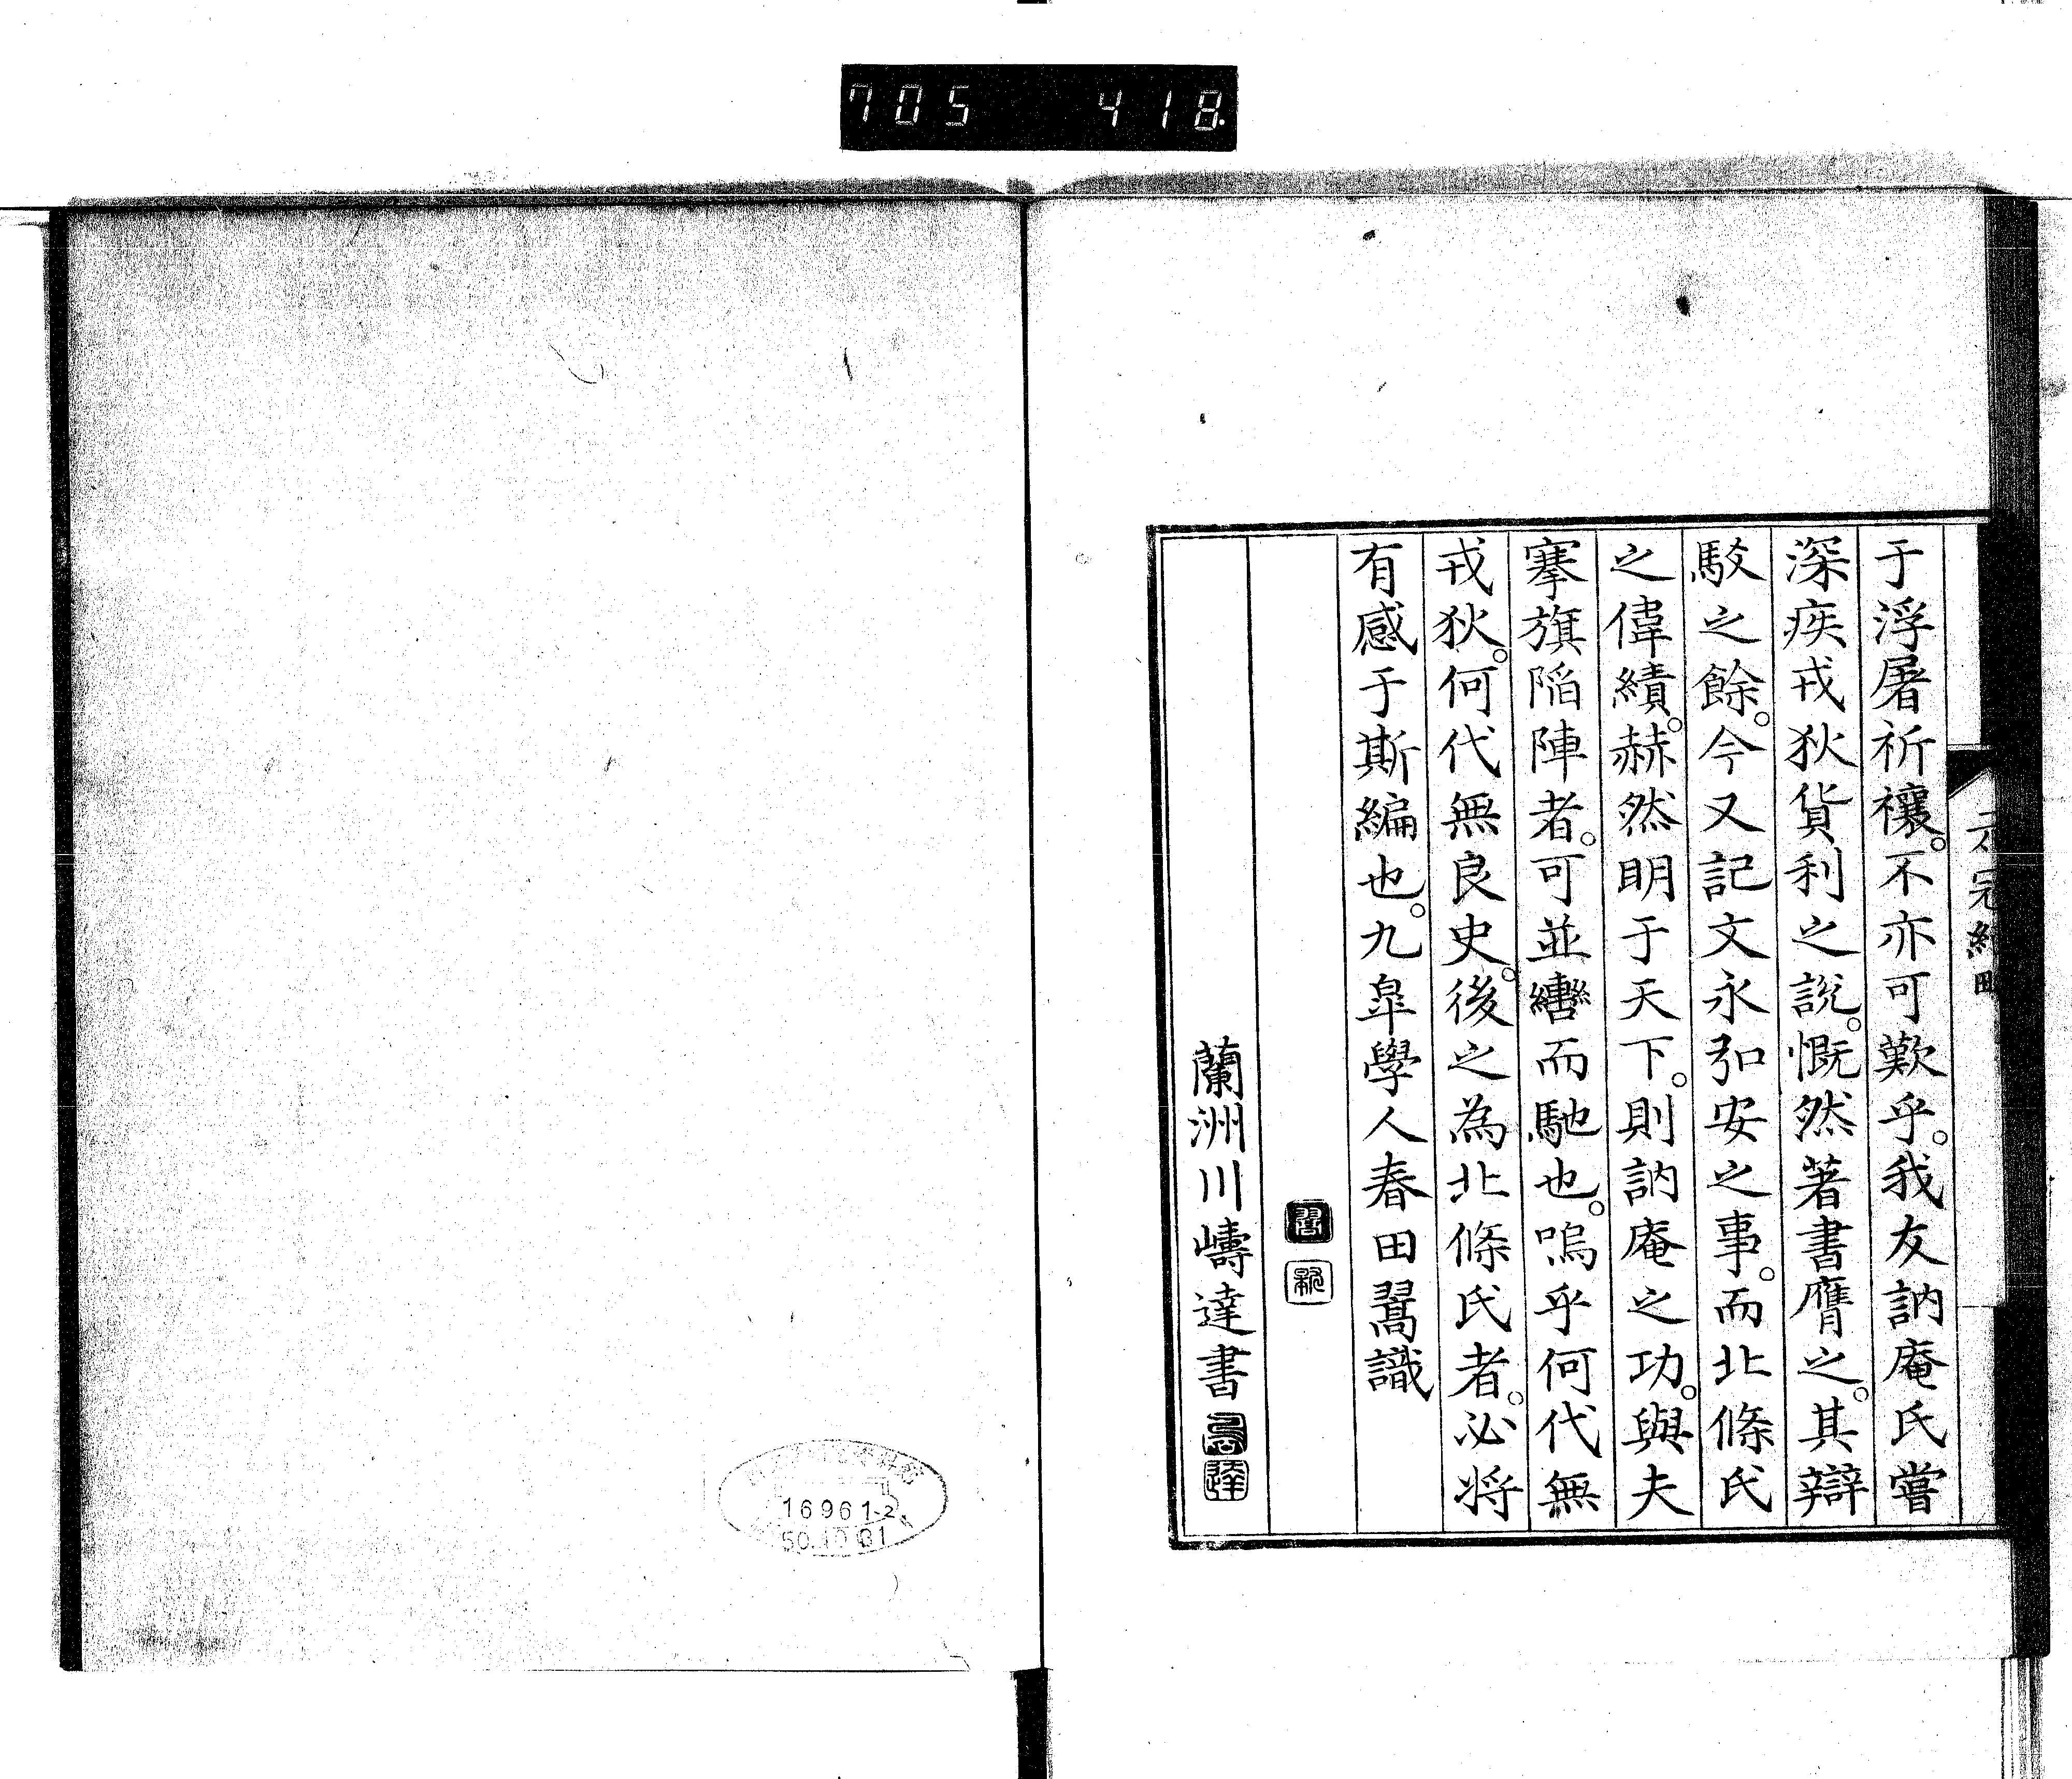 705 418.
元寇紀
于浮屠祈禳。不亦可歎乎。我友訥庵氏嘗
深疾戎狄貨利之說。慨然著書膺之。其辯
駁之餘。今又記文永弘安之事。而北條氏
之偉績。赫然明于天下。則訥庵之功。與夫
搴旗陷陣者。可並轡而馳也。嗚乎何代無
戎狄。何代無良史。後之為北條氏者。必将
有感于斯編也。九皐學人春田翯識
蘭洲川嶹達書
16961-2
50.10.31